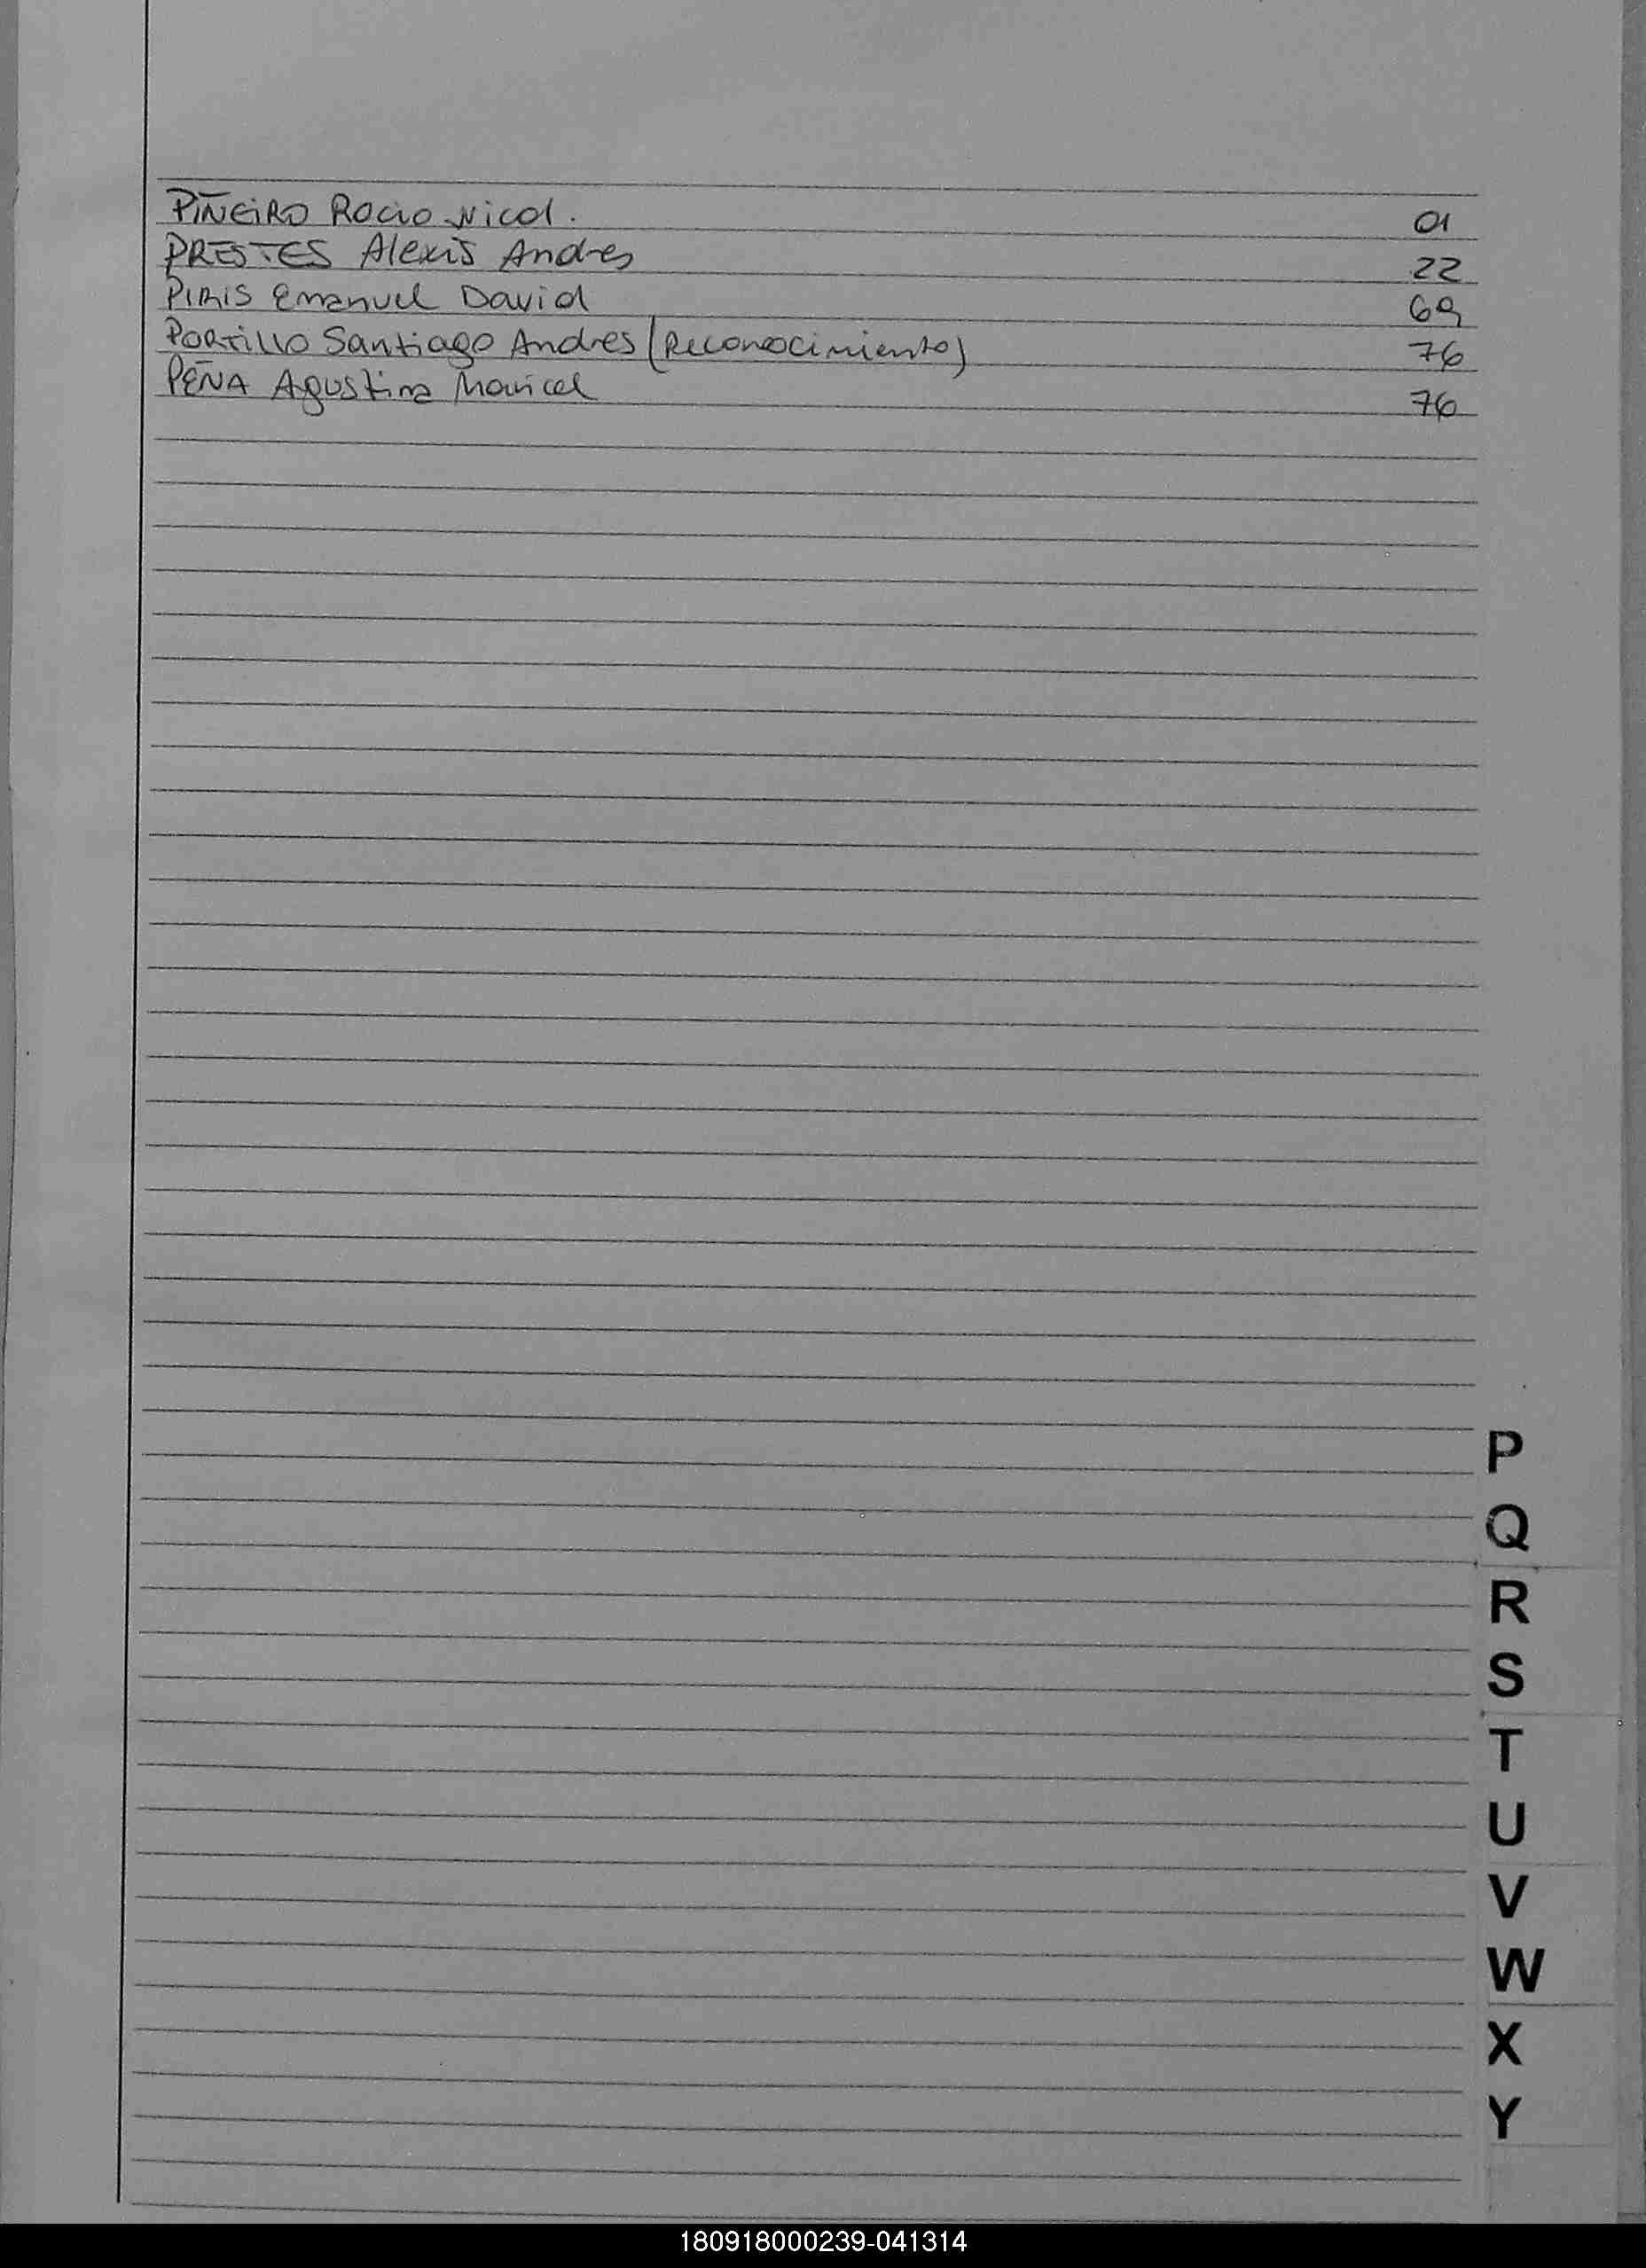 PIÑEIRO Rocio Nicol. 01
PRESTES Alexis Andres 22
PIRIS Emanuel David 69
PORTILLO Santiago Andres (Reconocimiento) 76
PEÑA Agustina Maricel 76
P
Q
R
S
T
U
V
W
X
Y
180918000239-041314